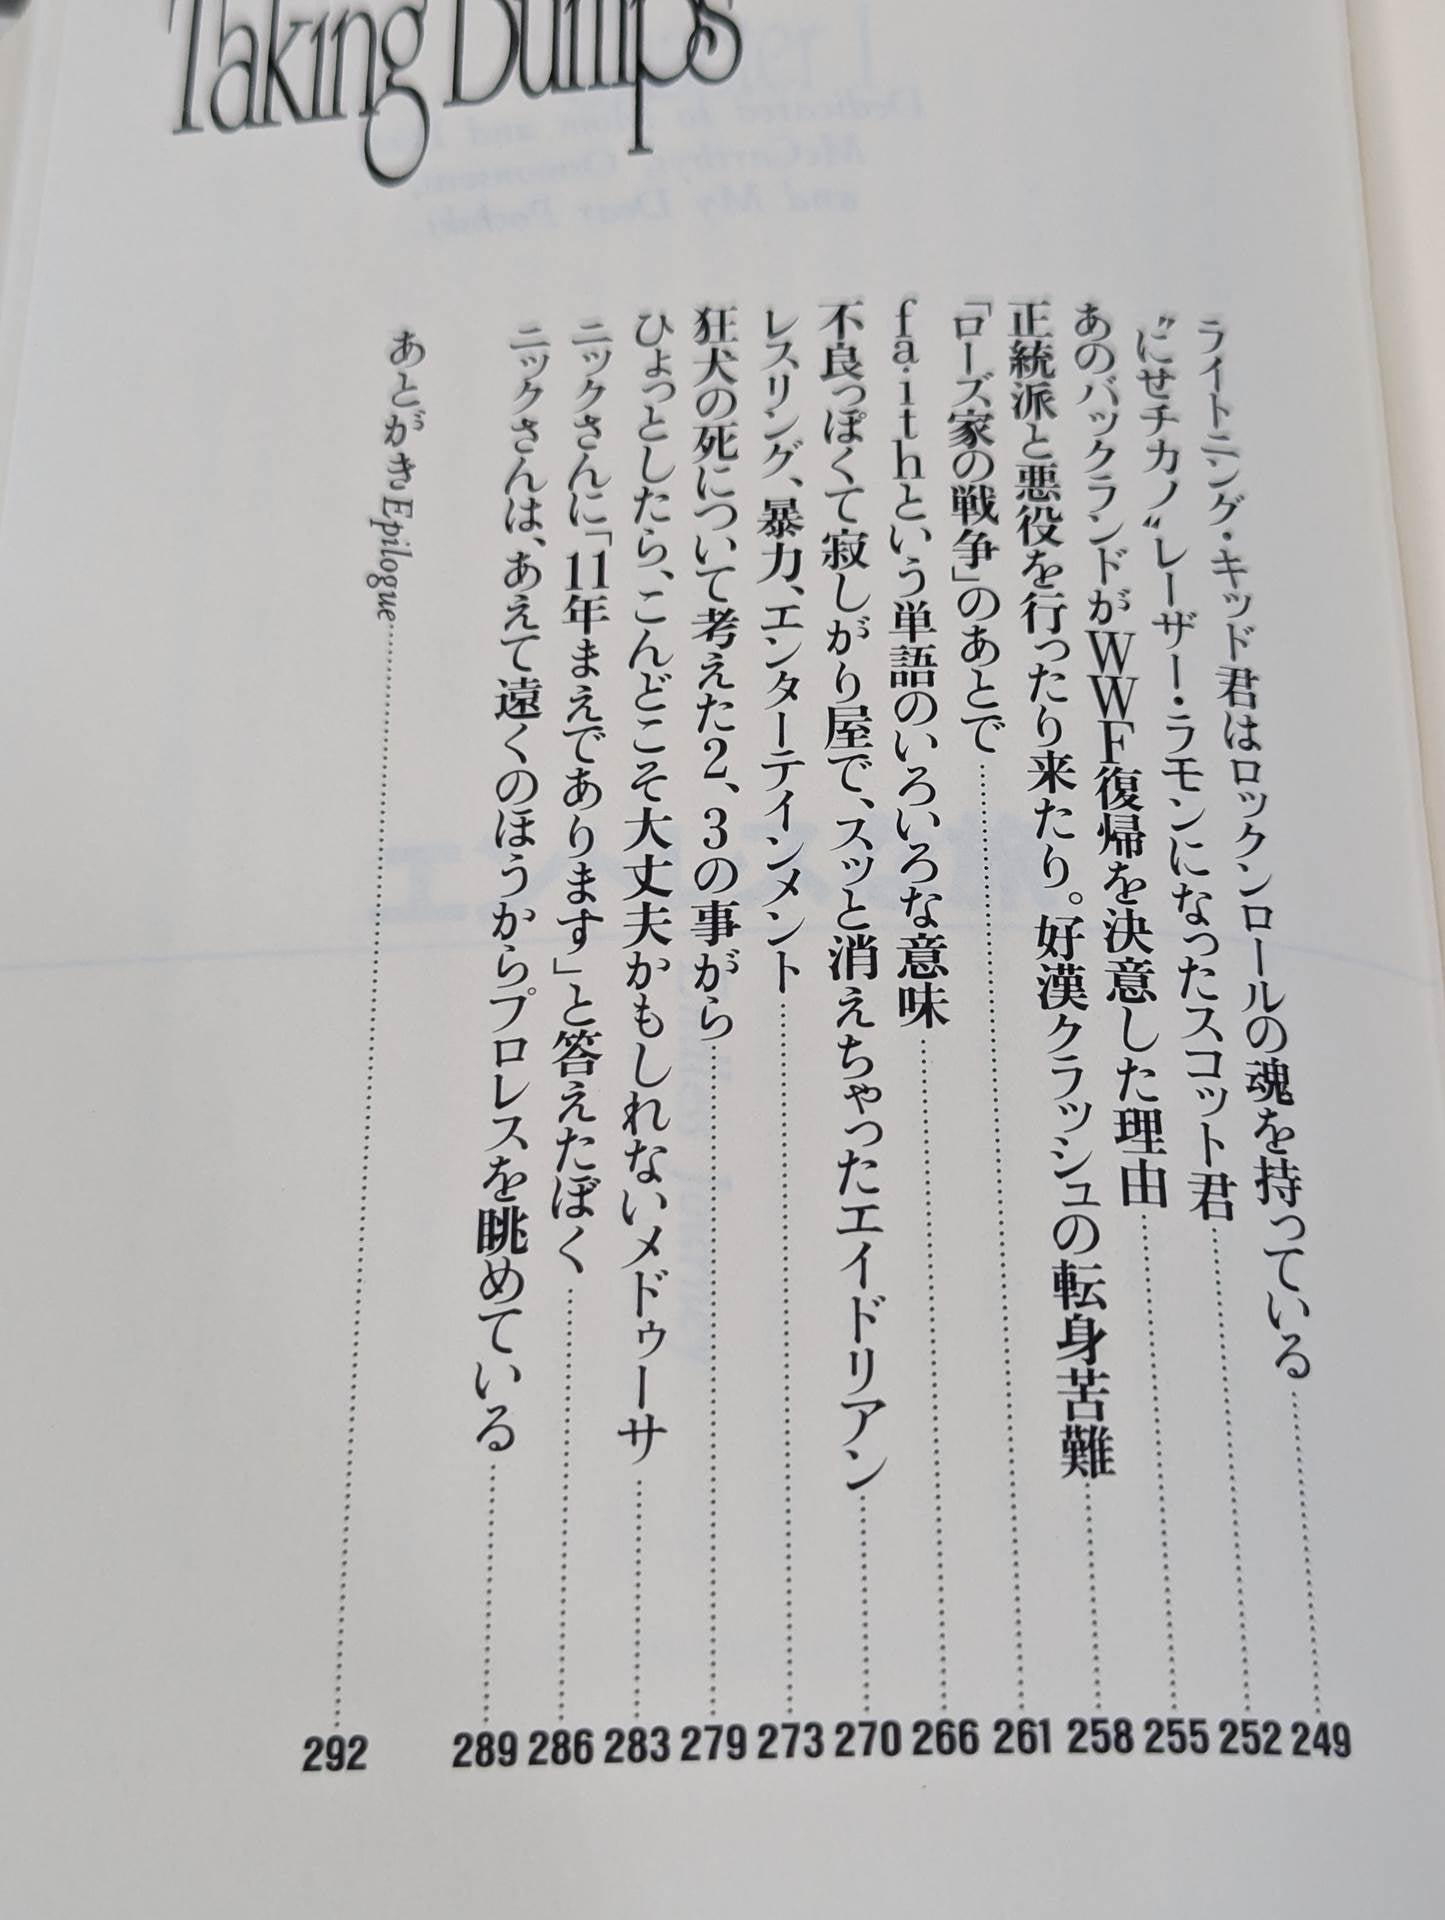 Taking Bumps
ライトニング・キッド君はロックンロールの魂を持っている……249
〝にせチカノ〟レーザー・ラモンになったスコット君……252
あのバックランドがWWF復帰を決意した理由……255
正統派と悪役を行ったり来たり。好漢クラッシュの転身苦難……258
「ローズ家の戦争」のあとで……261
fa・ithという単語のいろいろな意味……266
不良っぽくて寂しがり屋で、スッと消えちゃったエイドリアン……270
レスリング、暴力、エンターテインメント……273
狂犬の死について考えた2、3の事がら……279
ひょっとしたら、こんどこそ大丈夫かもしれないメドゥーサ……283
ニックさんに「11年まえであります」と答えたぼく……286
ニックさんは、あえて遠くのほうからプロレスを眺めている……289
あとがきEpilogue……292